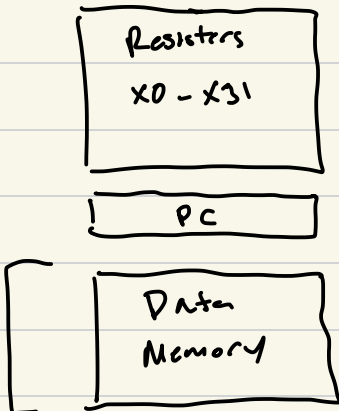 Registers
X0 - X31
PC
Data
Memory